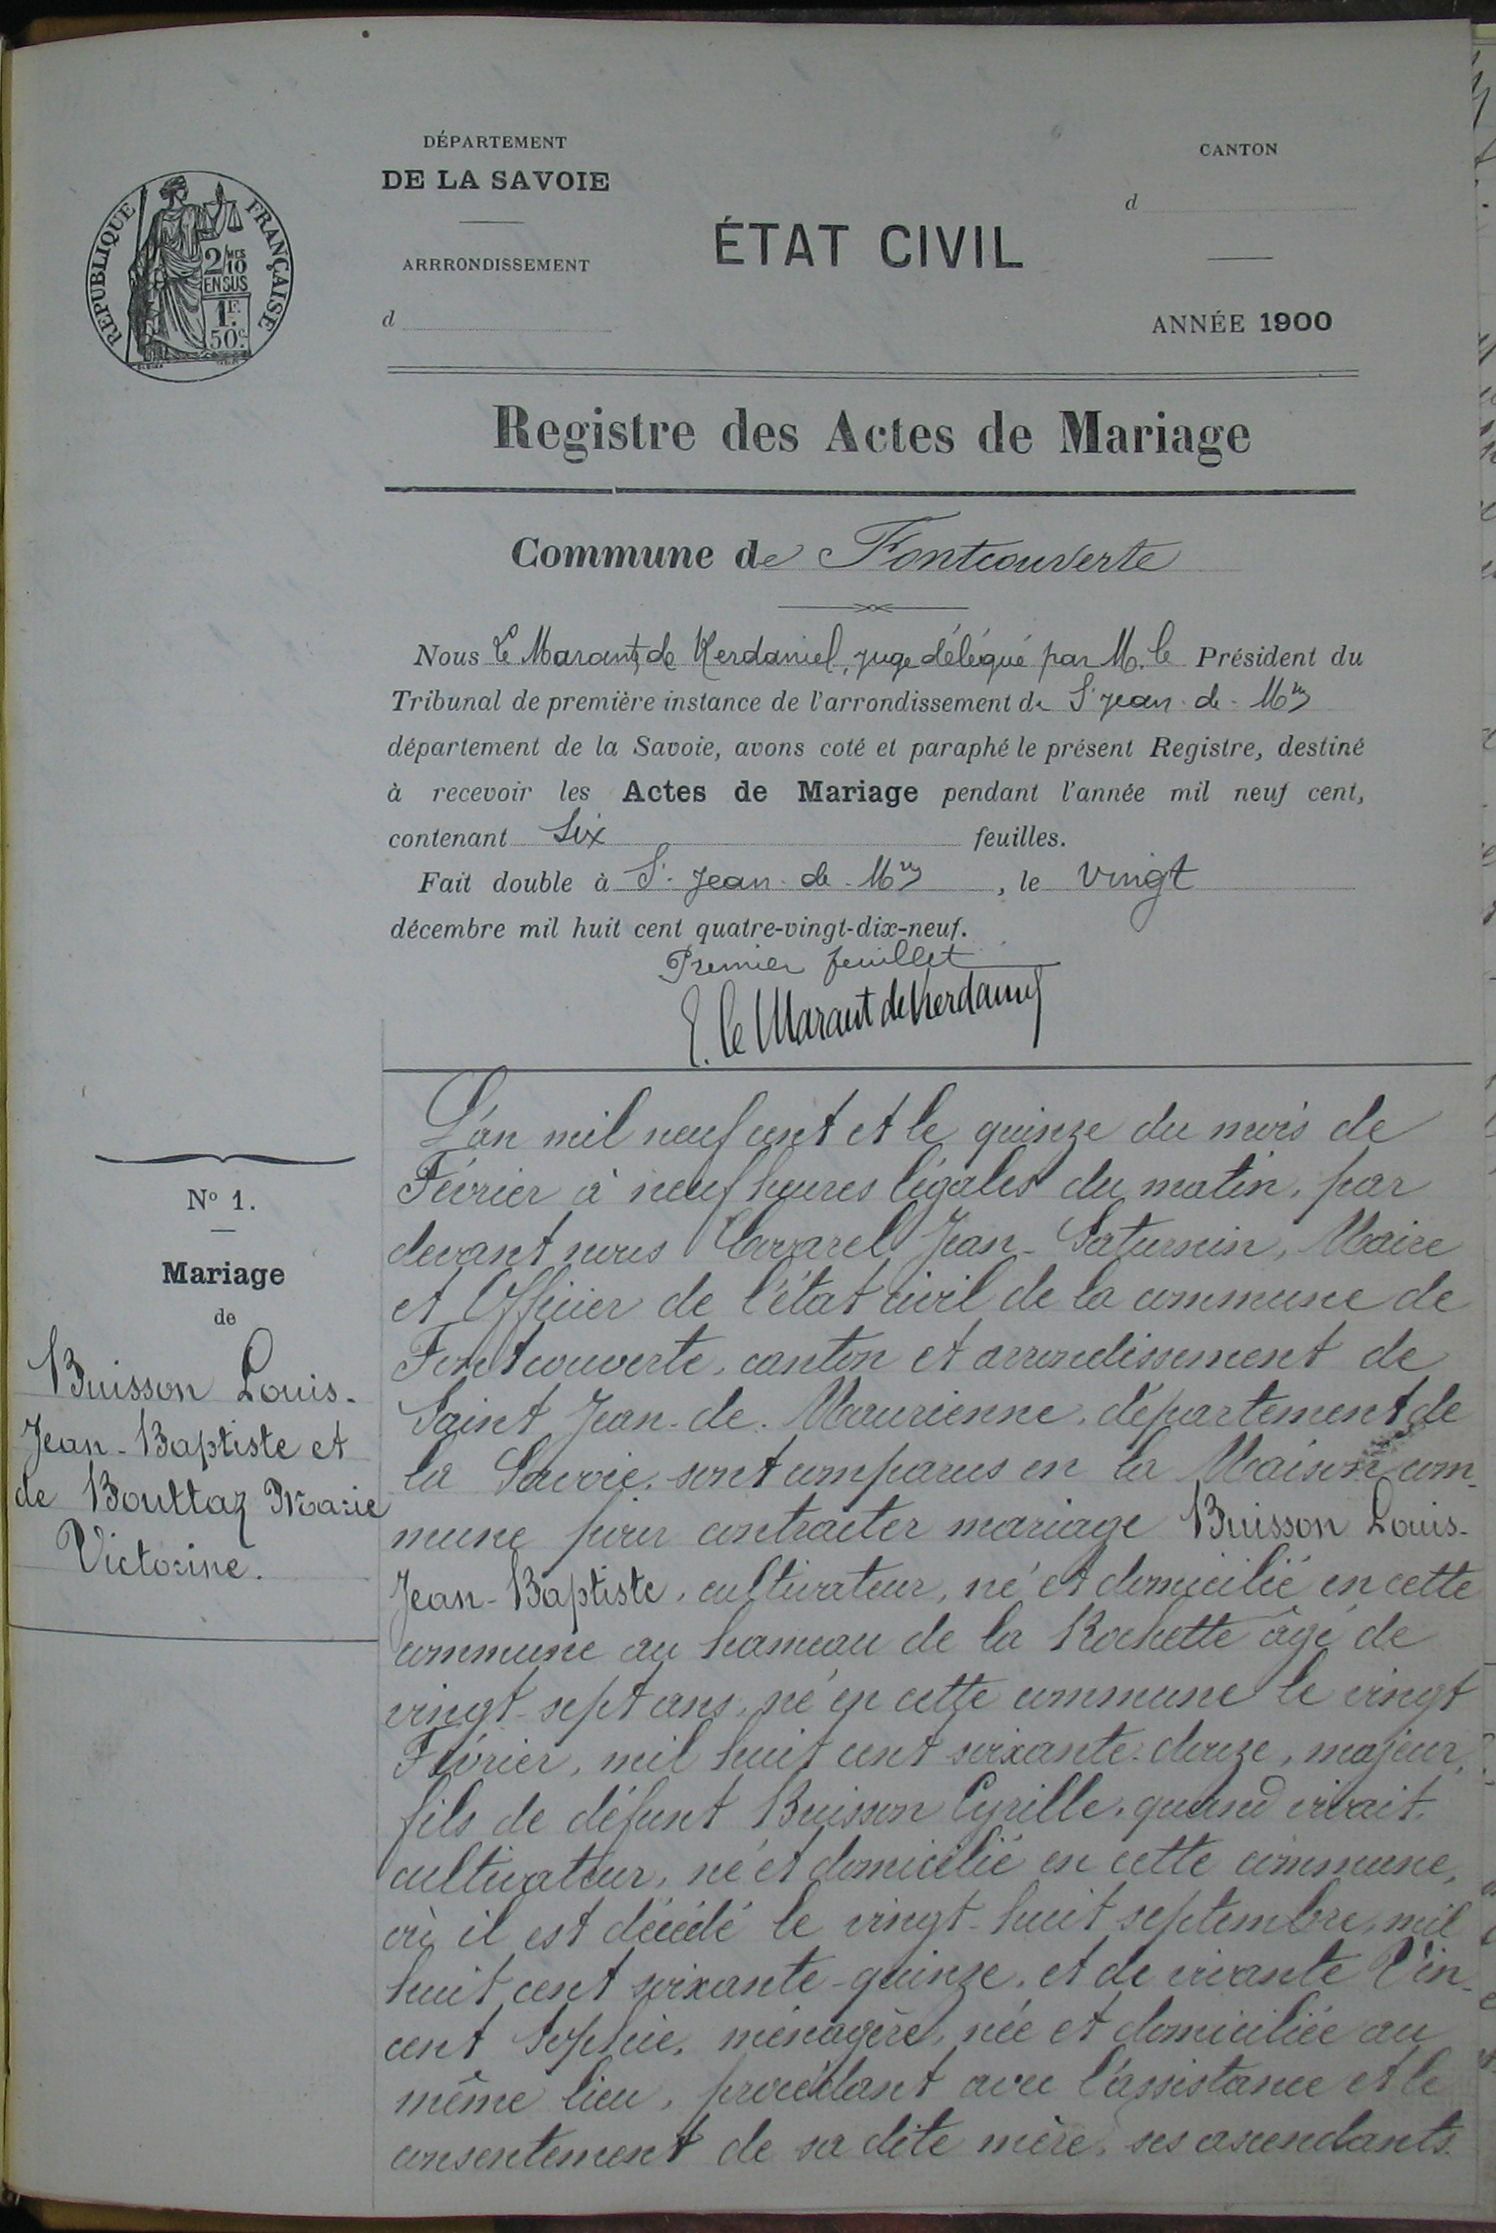 DÉPARTEMENT
DE LA SAVOIE
ARRRONDISSEMENT
d
CANTON
d
ÉTAT CIVIL
ANNÉE 1900
REPUBLIQUE FRANÇAISE
2/10MES
EN SUS
1F.
50c.
Registre des Actes de Mariage
Commune de Fontcouverte
Nous Le Marant de Kerdaniel, juge délégué par M. le Président du
Tribunal de première instance de l'arrondissement de St Jean-de-Mne
département de la Savoie, avons coté et paraphé le présent Registre, destiné
à recevoir les Actes de Mariage pendant l'année mil neuf cent,
contenant Six feuilles.
Fait double à St-Jean-de-Mne, le vingt
décembre mil huit cent quatre-vingt-dix-neuf.
Premier feuillet
E. le Marant de Kerdaniel
No 1.
Mariage
de
Buisson Louis-
Jean-Baptiste et
de Bouttaz Marie
Victorine.
L'an mil neuf cent et le quinze du mois de
Février à neuf heures légales du matin, par
devant nous Jean-Saturnin, Maire
et Officier de l'état civil de la commune de
Fontcouverte, canton et arrondissement de
Saint Jean-de-Maurienne, département de
la Savoie, sont comparus en la Maison com-
mune pour contracter mariage Buisson Louis-
Jean-Baptiste, cultivateur, né et domicilié en cette
commune au hameau de la Rochette âgé de
vingt-sept ans, né en cette commune le vingt
Février, mil huit cent soixante-douze, majeur,
fils de défunt Buisson Cyrille, quand vivait,
cultivateur, né et domicilié en cette commune,
où il est décédé le vingt-huit septembre, mil
huit cent soixante-quinze, et de vivante Vin-
cent Sophie, ménagère, née et domiciliée au
même lieu, procédant avec l'assistance et le
consentement de sa dite mère, ses ascendants